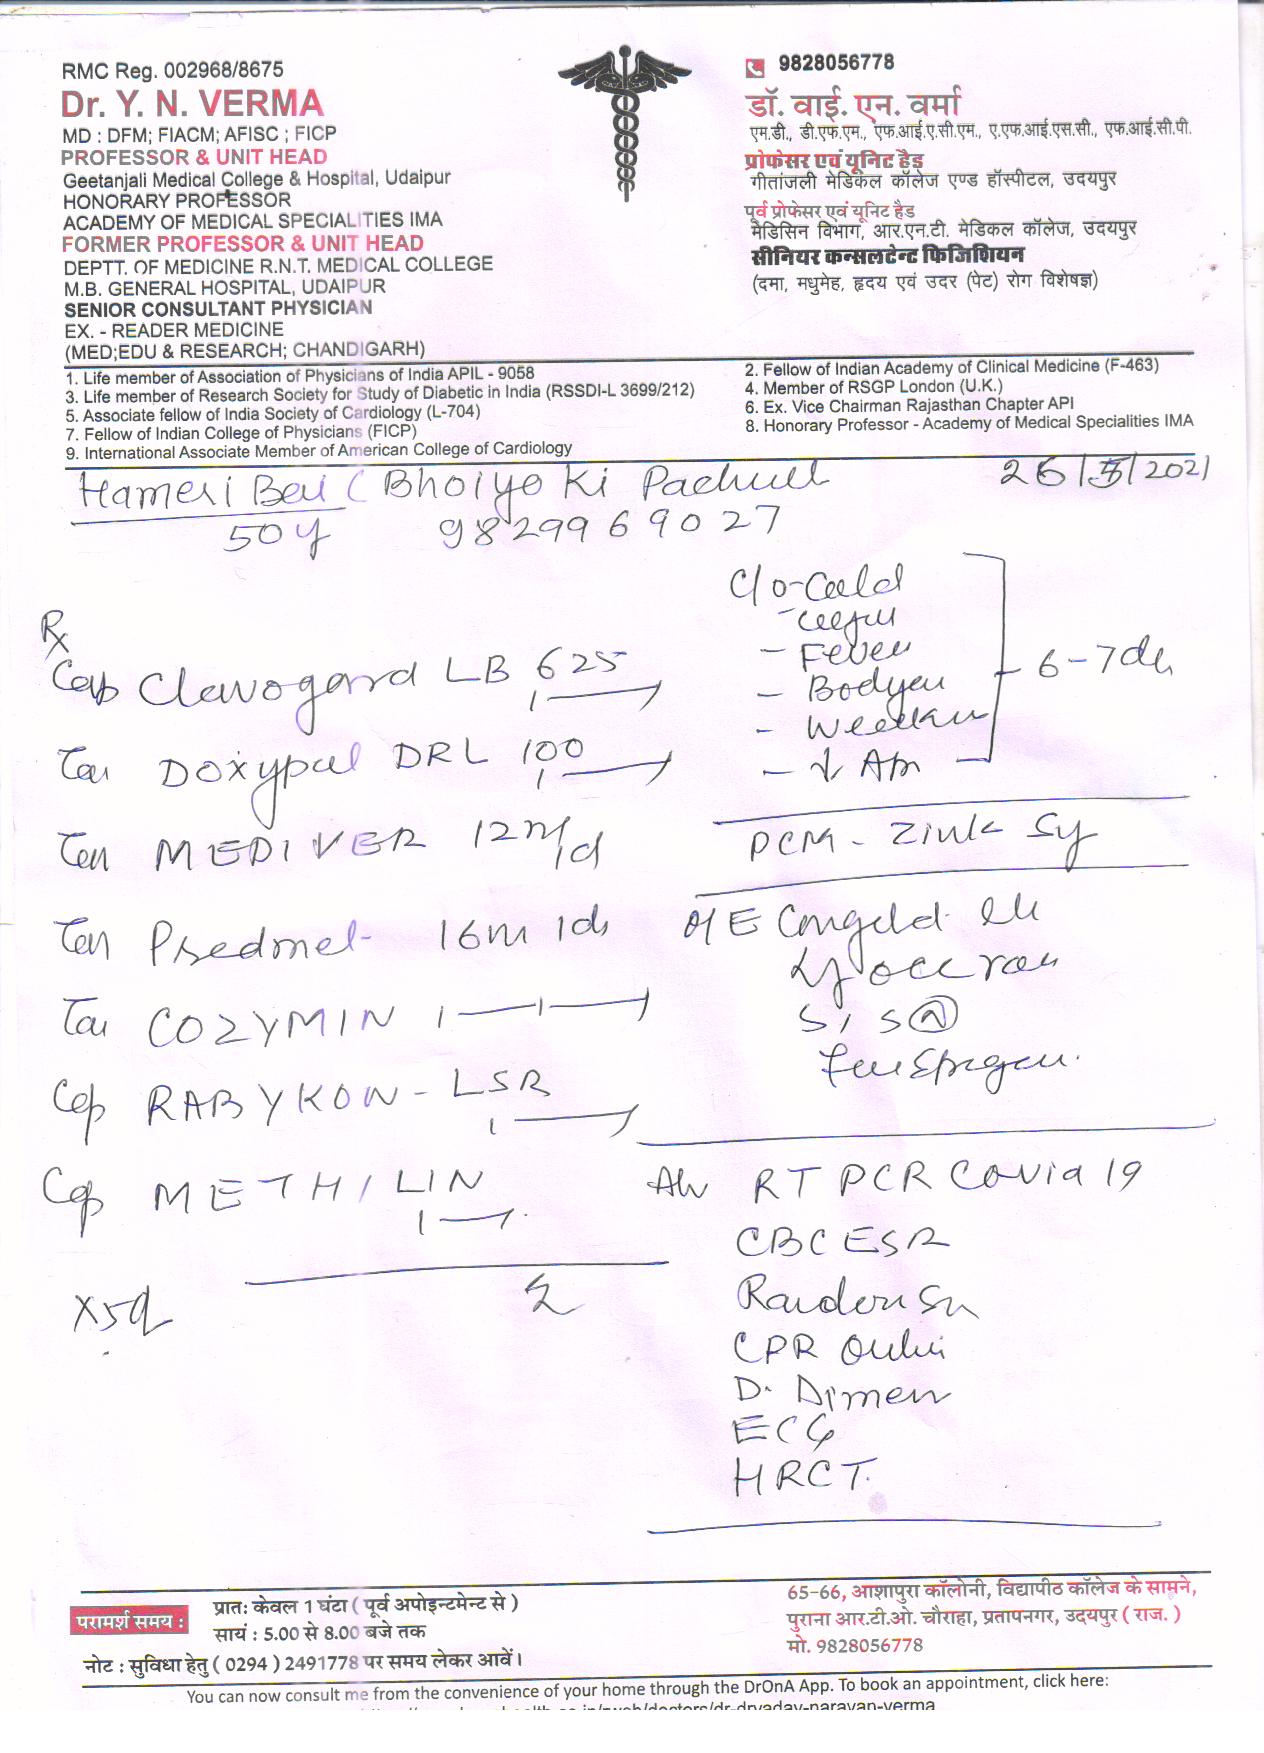 RMC Reg. 002968/8675
Dr. Y. N. VERMA
MD : DFM; FIACM; AFISC ; FICP
PROFESSOR & UNIT HEAD
Geetanjali Medical College & Hospital, Udaipur
HONORARY PROFESSOR
ACADEMY OF MEDICAL SPECIALITIES IMA
FORMER PROFESSOR & UNIT HEAD
DEPTT. OF MEDICINE R.N.T. MEDICAL COLLEGE
M.B. GENERAL HOSPITAL, UDAIPUR
SENIOR CONSULTANT PHYSICIAN
EX. - READER MEDICINE
(MED;EDU & RESEARCH; CHANDIGARH)
9828056778
डॉ. वाई. एन. वर्मा
एम.डी., डी.एफ.एम., एफ.आई.ए.सी.एम., ए.एफ.आई.एस.सी., एफ.आई.सी.पी.
प्रोफेसर एवं यूनिट हैड
गीतांजली मेडिकल कॉलेज एण्ड हॉस्पीटल, उदयपुर
पूर्व प्रोफेसर एवं यूनिट हैड
मेडिसिन विभाग, आर.एन.टी. मेडिकल कॉलेज, उदयपुर
सीनियर कन्सलटेन्ट फिजिशियन
(दमा, मधुमेह, हृदय एवं उदर (पेट) रोग विशेषज्ञ)
1. Life member of Association of Physicians of India APIL - 9058
2. Fellow of Indian Academy of Clinical Medicine (F-463)
3. Life member of Research Society for Study of Diabetic in India (RSSDI-L 3699/212)
4. Member of RSGP London (U.K.)
5. Associate fellow of India Society of Cardiology (L-704)
6. Ex. Vice Chairman Rajasthan Chapter API
7. Fellow of Indian College of Physicians (FICP)
8. Honorary Professor - Academy of Medical Specialities IMA
9. International Associate Member of American College of Cardiology
Hameri Bai ( Bhoiyo Ki 26/5/2021
50y 9829969027
Rx
Cap Clavogard LB 625
DOXYPAL DRL 100
MEDIVER 12
Predmet 16m
COZYMIN
Cap RABYKON-LSR
Cap METHILIN
X5d
C/o-Cold
- Fever
6-7d
PCM - Zink Sy
O/E
S1 S2 N
RTPCR Covid 19
CBC ESR
Random
CPR
D. Dimer
ECG
HRCT.
परामर्श समय :
प्रातः केवल 1 घंटा ( पूर्व अपोइन्टमेन्ट से )
सायं : 5.00 से 8.00 बजे तक
नोट : सुविधा हेतु ( 0294 ) 2491778 पर समय लेकर आवें।
65-66, आशापुरा कॉलोनी, विद्यापीठ कॉलेज के सामने,
पुराना आर.टी.ओ. चौराहा, प्रतापनगर, उदयपुर ( राज. )
मो. 9828056778
You can now consult me from the convenience of your home through the DrOnA App. To book an appointment, click here: